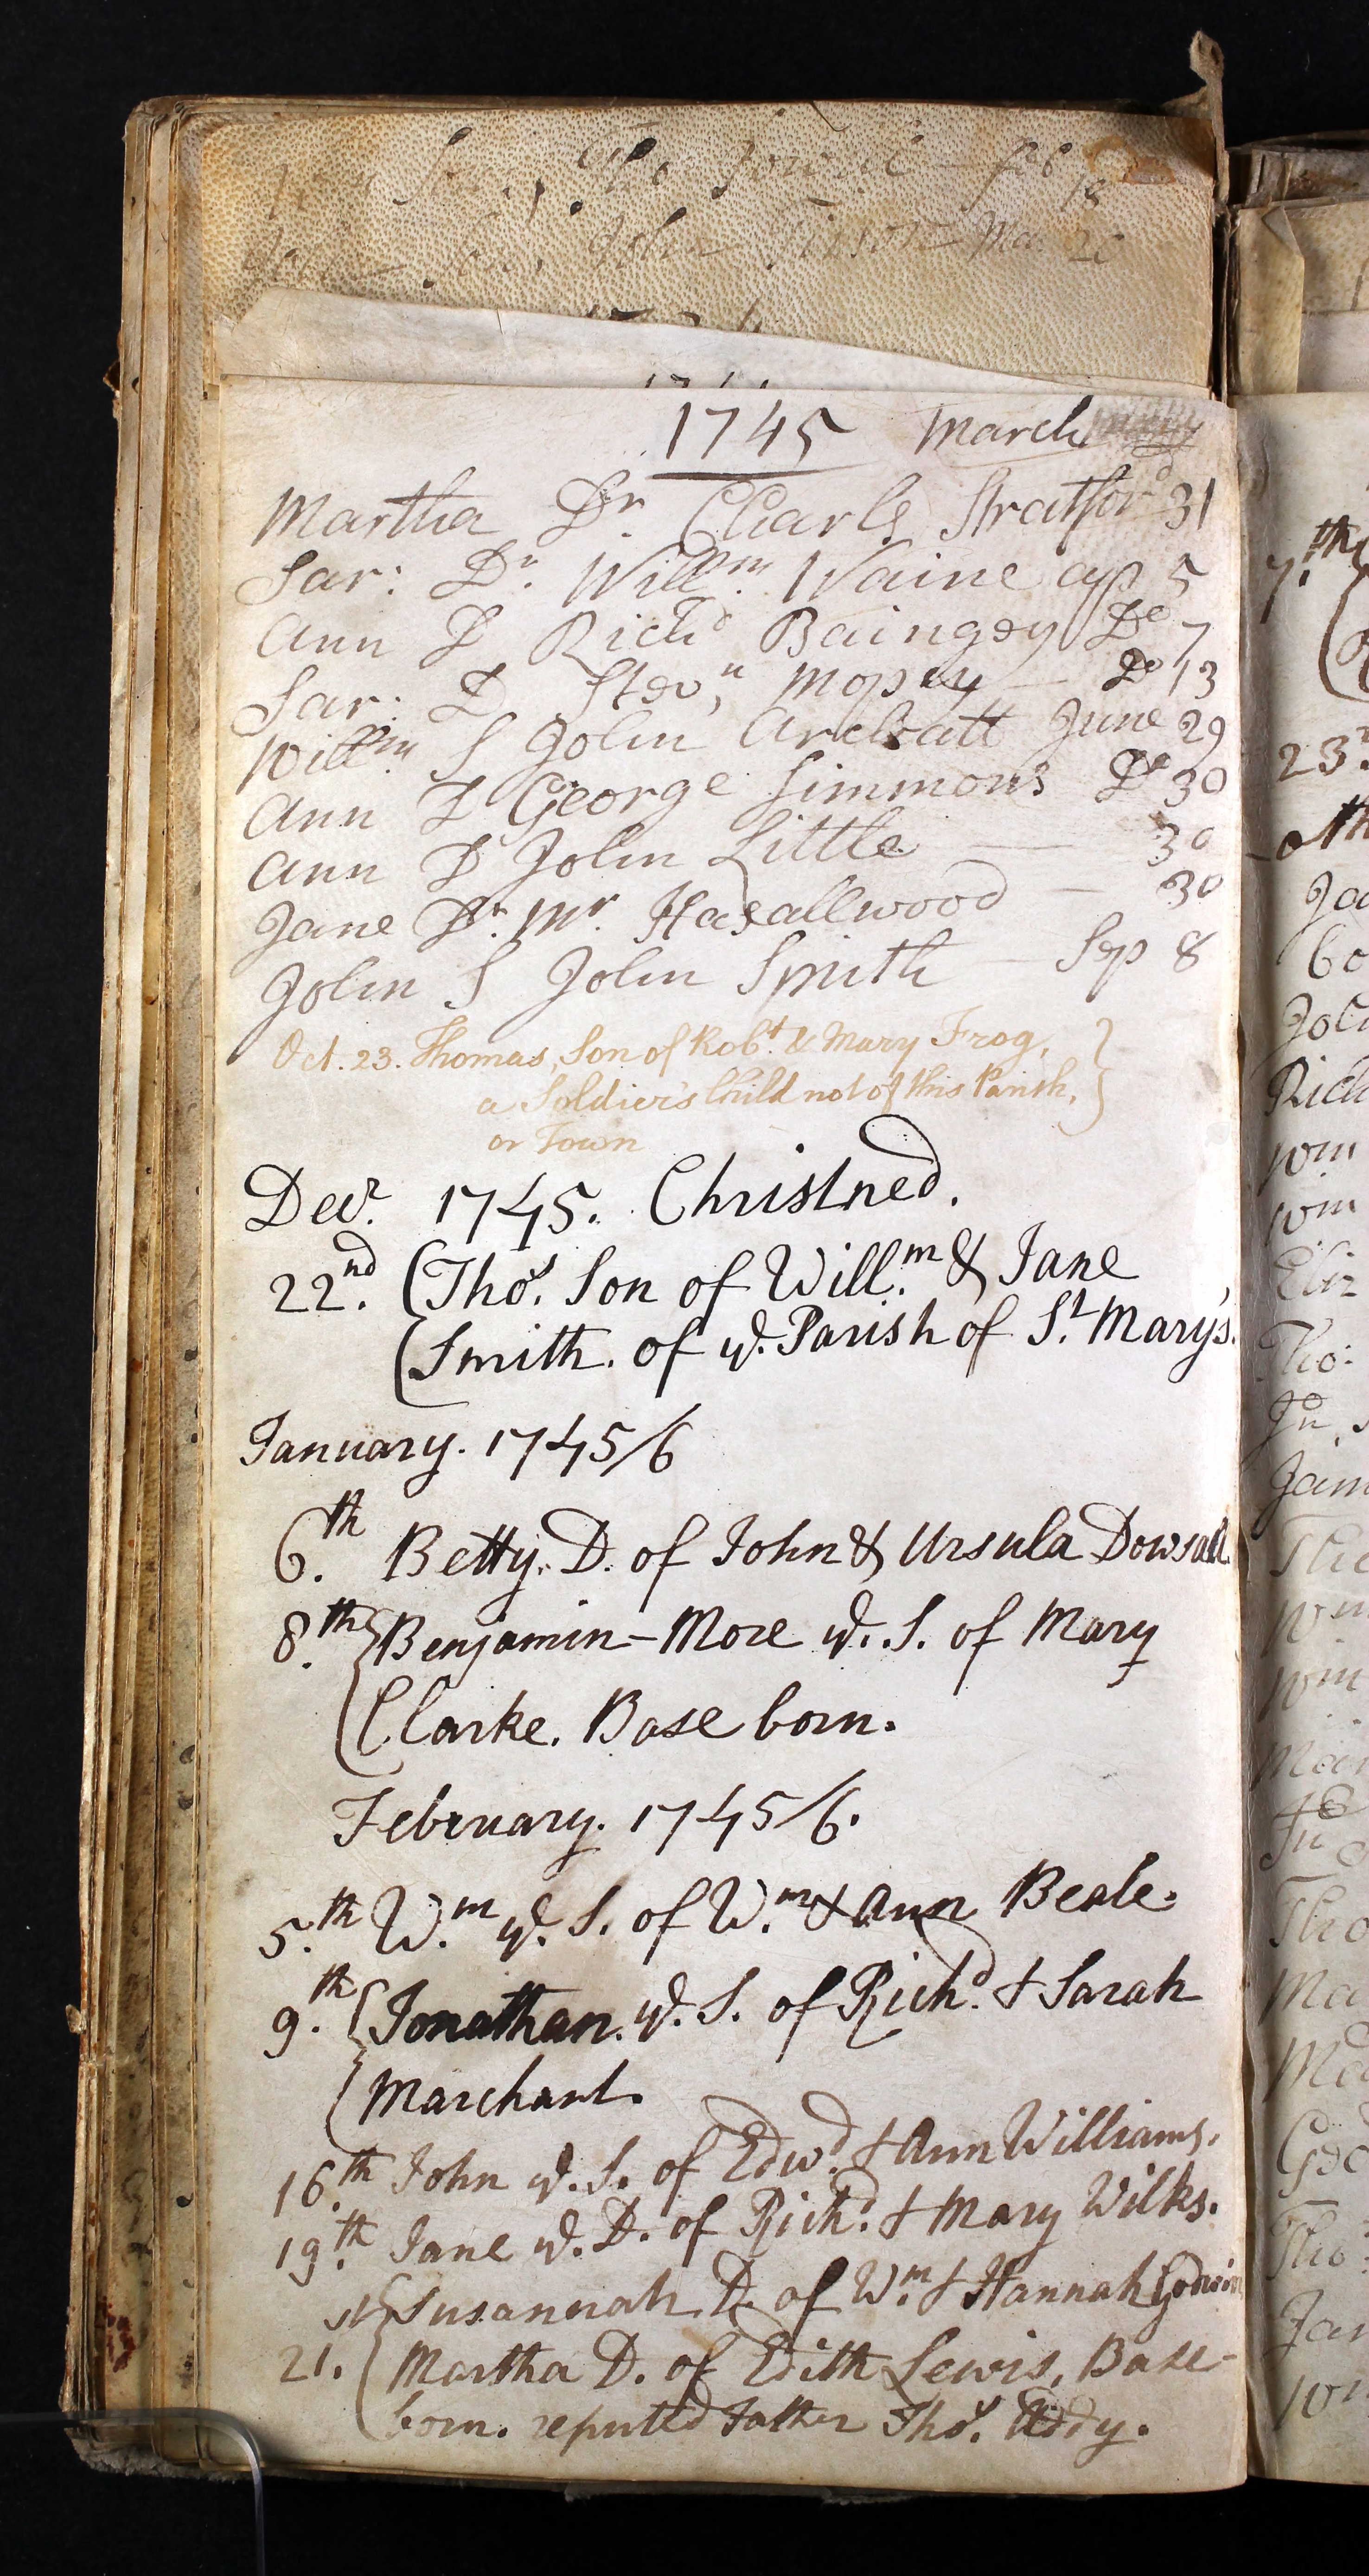 Tho
John Mar 20
1745 March
Martha Dr. Charls Stratford 31
Sar: Dr. Willm. Waine ap 5
Ann D Richd Baingey Do 7
Sar: D Stevn Mopsy Do 13
Willm. S John Archatt June 29
Ann D George Simmons Do 30
Ann D John Little 30
Jane Dr. Mr. Hasallwood 30
John S John Smith Sep 8
Oct. 23. Thomas, Son of Robt. & Mary Frog,
a Soldier's Child not of this Parish,
or Town
Decr. 1745. Christned.
22nd. Thos. Son of Will.m & Jane
Smith. of ye. Parish of St. Mary's.
January. 1745/6
6th. Betty. D. of John & Ursula Dowsall
8th. Benjamin-More ye. S. of Mary
Clarke. Base born.
February. 1745/6.
5.th W.m ye. S. of W.m & Ann Beale.
9th. Jonathan. ye. S. of Richd. & Sarah
Marchant.
16th. John ye. S. of Edwd. & Ann Williams.
19th. Jane ye. D. of Richd. & Mary Wilks.
Susannah. D. of Wm. & Hannah Godwin
21. st Martha D. of Edith Lewis, Base-
born. reputed Father Thos. Addy.
7.th
23.
Rich
Wm
Wm
Eliz
Tho:
Jn
Jam
Wm
Wm
Tho
Ma
Geo
Tho
Jan